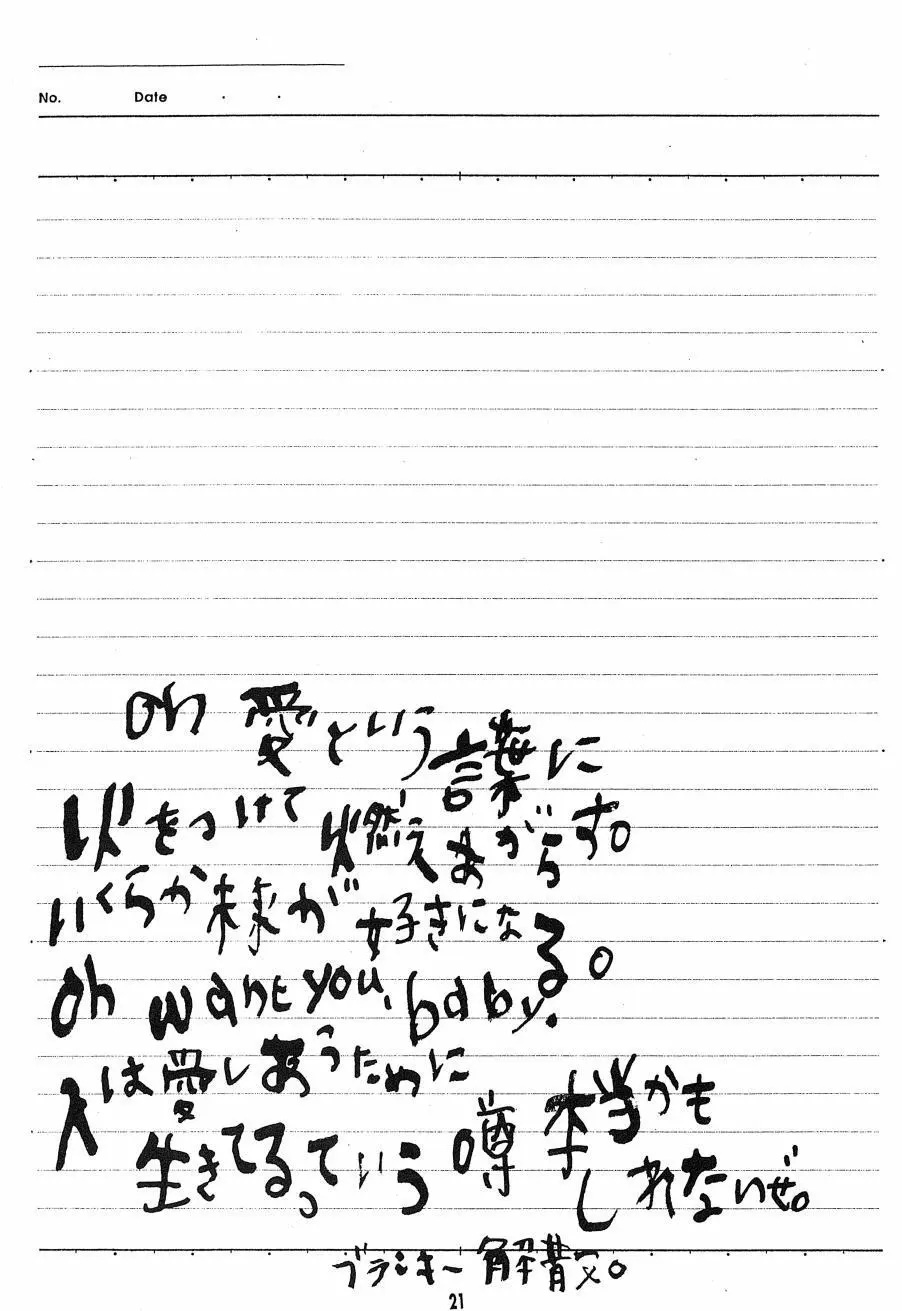 No. Date
oh 愛という言葉に
火をつけて 燃えあがらす。
いくらか様が好きになる。
oh want you, baby.
人は愛しあうために
生きてるっていう噂 本当かも
しれないぜ。
ブランキー解散。
21